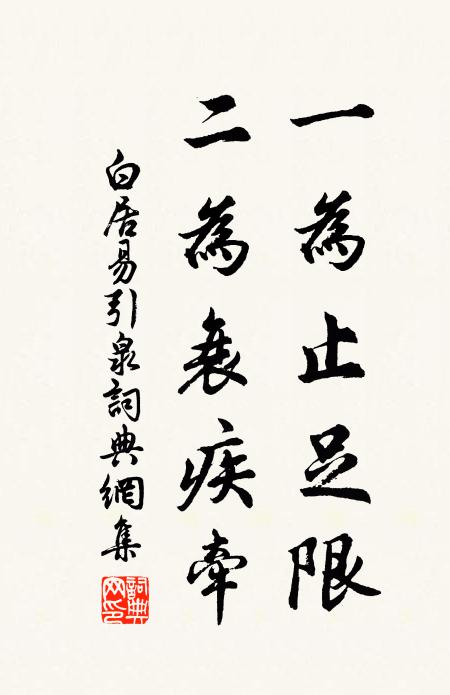 一為止足限
二為衰疾牽
白居易引泉詞典網集
詞典網印